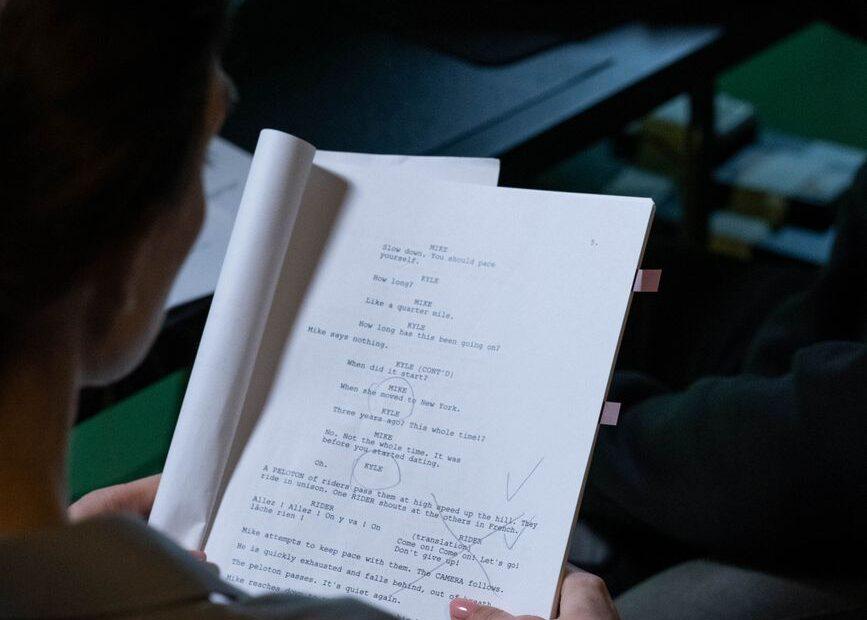 5.
MIKE
Slow down. You should pace
yourself.
KYLE
How long?
MIKE
Like a quarter mile.
KYLE
How long has this been going on?
Mike says nothing.
KYLE (CONT'D)
When did it start?
MIKE
When she moved to New York.
KYLE
Three years ago? This whole time!?
MIKE
No. Not the whole time. It was
before you started dating.
KYLE
Oh.
A PELOTON of riders pass them at high speed up the hill. They
ride in unison. One RIDER shouts at the others in French.
RIDER
Allez ! Allez ! On y va ! On
lâche rien !
RIDER
(translation)
Come on! Come on! Let's go!
Don't give up!
Mike attempts to keep pace with them. The CAMERA follows.
He is quickly exhausted and falls behind, out of breath.
The peloton passes. It's quiet again.
Mike reaches down